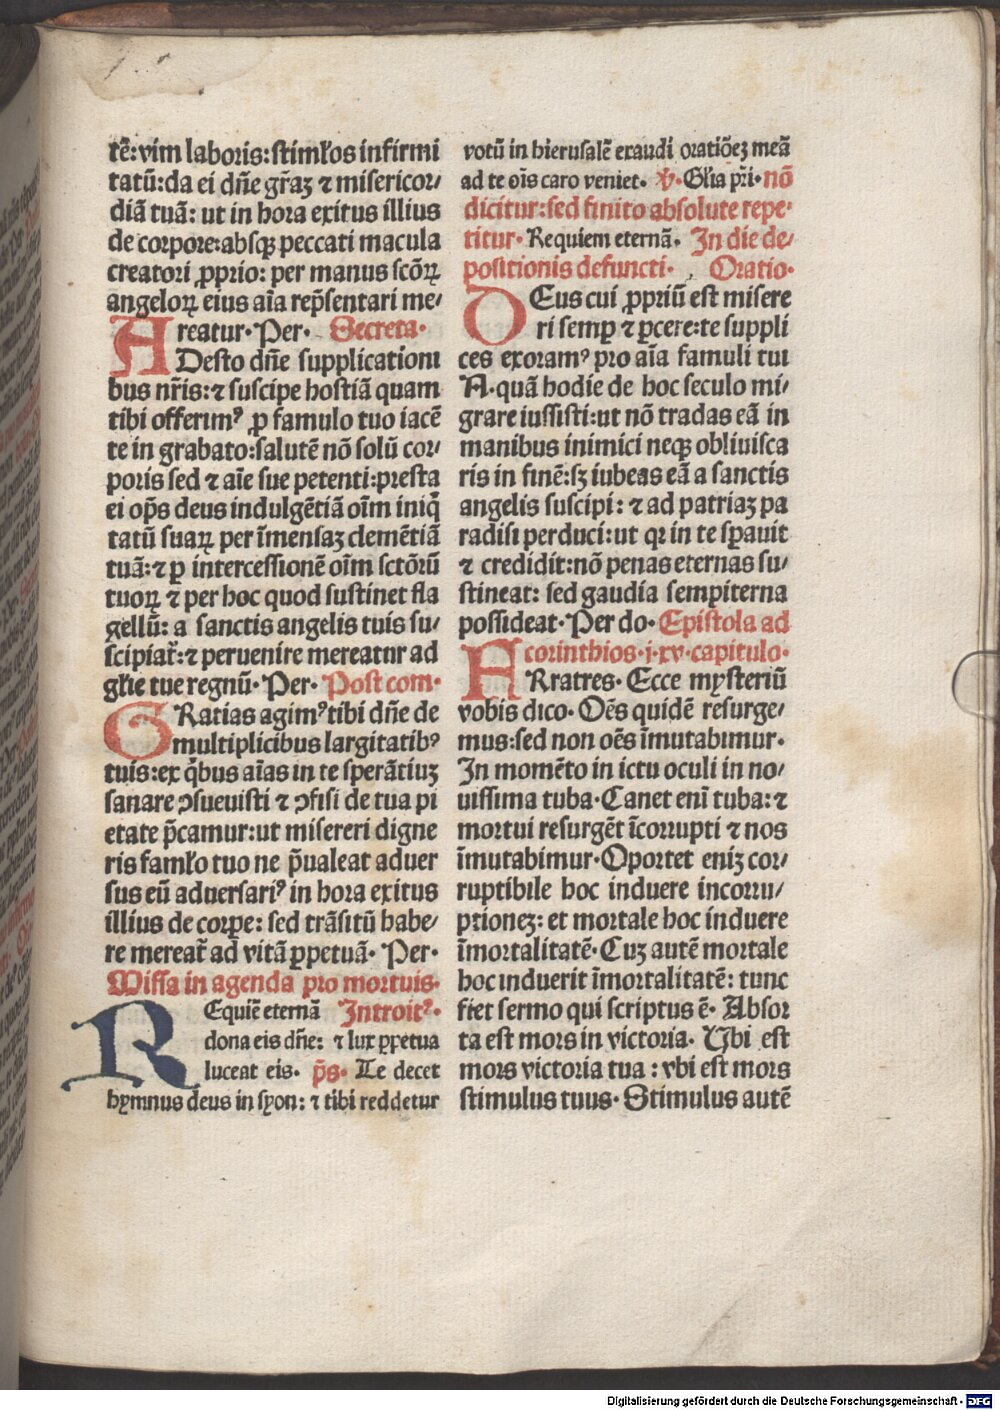 tē: vim laboris: stimłos infirmi
tatū: da ei dn̄e gr̄aꝫ ⁊ misericor/
diā tuā: ut in hora exitus illius
de corpore: absqꝫ peccati macula
creatori ꝓprio: per manus scōꝝ
angeloꝝ eius aīa rep̄sentari me/
reatur. Per. Secreta.
ADesto dn̄e supplicationi
bus nr̄is: ⁊ suscipe hostiā quam
tibi offerimꝰ ꝓ famulo tuo iacē
te in grabato: salutē nō solū cor/
poris sed ⁊ aīe sue petenti: presta
ei op̄s deus indulgētiā oīm iniq̄
tatū suaꝝ per īmensaꝫ clemētiā
tuā: ⁊ ꝑ intercessionē oīm sctōrū
tuoꝝ ⁊ per hoc quod sustinet fla
gellū: a sanctis angelis tuis su/
scipiat᷑: ⁊ peruenire mereatur ad
gl̄ie tue regnū. Per. Post com.
GRatias agimꝰ tibi dn̄e de
multiplicibus largitatibꝰ
tuis: ex q̇bus aīas in te sperātiuꝫ
sanare ꝯsueuisti ⁊ ꝯfisi de tua pi
etate p̄camur: ut misereri digne
ris famło tuo ne p̄ualeat aduer
sus eū aduersariꝰ in hora exitus
illius de corꝑe: sed trāsitū habe/
re mereat᷑ ad vitā ꝑpetuā. Per.
Missa in agenda pro mortuis.
REquiē eternā Introitꝰ.
dona eis dn̄e: ⁊ lux ꝑpetua
luceat eis. p̄s. Te decet
hymnus deus in syon: ⁊ tibi reddetur
votū in hierusalē exaudi oratiōeꝫ meā
ad te oīs caro veniet. ℣. Gl̄ia pr̄i. nō
dicitur: sed finito absolute repe/
titur. Requiem eternā. In die de/
positionis defuncti. Oratio.
DEus cui ꝓpriū est misere
ri semꝑ ⁊ ꝑcere: te suppli
ces exoramꝰ pro aīa famuli tui
A. quā hodie de hoc seculo mi/
grare iussisti: ut nō tradas eā in
manibus inimici neqꝫ obliuisca
ris in finē: sꝫ iubeas eā a sanctis
angelis suscipi: ⁊ ad patriaꝫ pa
radisi perduci: ut qꝛ in te sperauit
⁊ credidit: nō penas eternas su/
stineat: sed gaudia sempiterna
possideat. Per do. Epistola ad
corinthios. j. xv. capitulo.
FRratres. Ecce mysteriū
vobis dico. Oēs quidē resurge/
mus: sed non oēs īmutabimur.
In momēto in ictu oculi in no/
uissima tuba. Canet enī tuba: ⁊
mortui resurgēt īcorrupti ⁊ nos
īmutabimur. Oportet eniꝫ cor/
ruptibile hoc induere incorru/
ptioneꝫ: et mortale hoc induere
īmortalitatē. Cuꝫ autē mortale
hoc induerit īmortalitatē: tunc
fiet sermo qui scriptus ē. Absor
ta est mors in victoria. Ubi est
mors victoria tua: vbi est mors
stimulus tuus. Stimulus autē
Digitalisierung gefördert durch die Deutsche Forschungsgemeinschaft - DFG